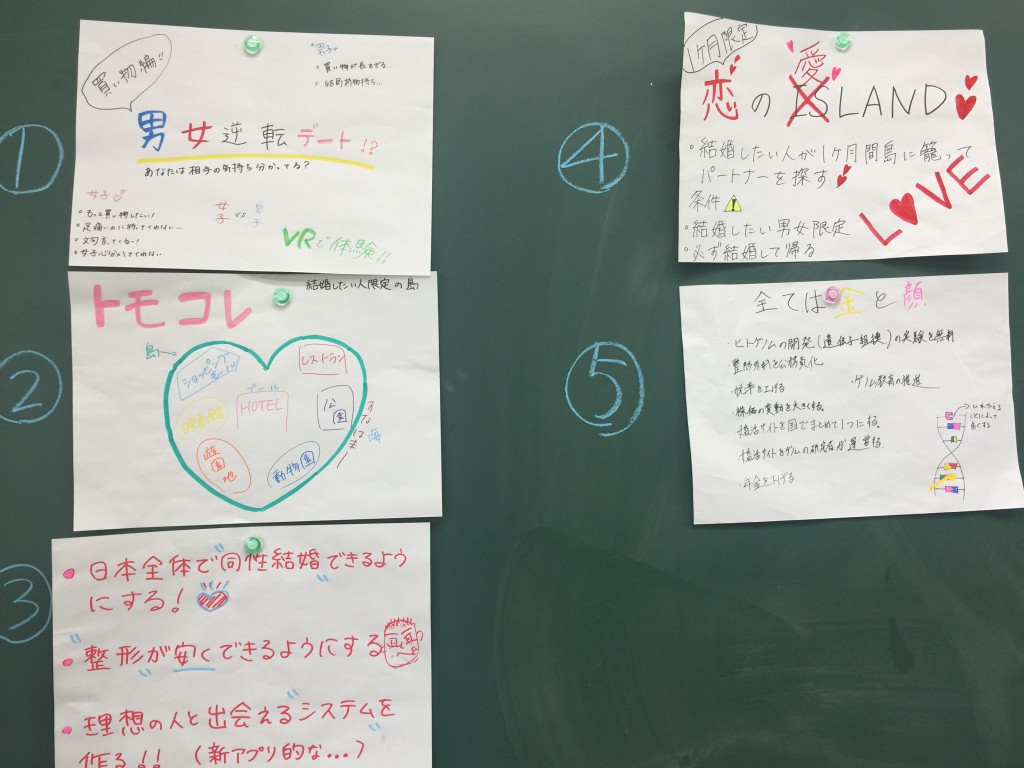 ①
買い物編!!
"男子"
・買い物が長すぎる…
・結局荷物持ち…
男女逆転デート!?
あなたは相手の気持ち分かってる?
女子
・もっと買い物したい!
・足痛いのに待ってくれない…
・文句言ってくるー!
・女子心分かってくれない
女子 vs 男子
VRで体験!!
②
トモコレ
結婚したい人限定の島
島→
ショッピングモール
レストラン
プール
HOTEL
映画館
公園
遊園地
動物園
すなはま
海
③
・日本全体で"同性結婚"できるよう
にする!
・"整形が安く"できるようにする
・理想の人と出会えるシステムを
作る!! (新アプリ的な…)
④
1ヶ月限定
愛
恋の ISLAND
・結婚したい人が1ヶ月間島に籠って
パートナーを探す
条件
・結婚したい男女限定
・必ず結婚して帰る
LOVE
⑤
全ては金と顔
・ヒトゲノムの開発(遺伝子組換)の実験を無料
・整形無料と公務員化
・税率を上げる
・ゲノム教育の推進
・株価の変動を大きくする
・婚活サイトを国でまとめて1つにする。
・婚活サイトをゲノムの研究者が運営する。
・年金を下げる
いれかえる
ことによって
良くする